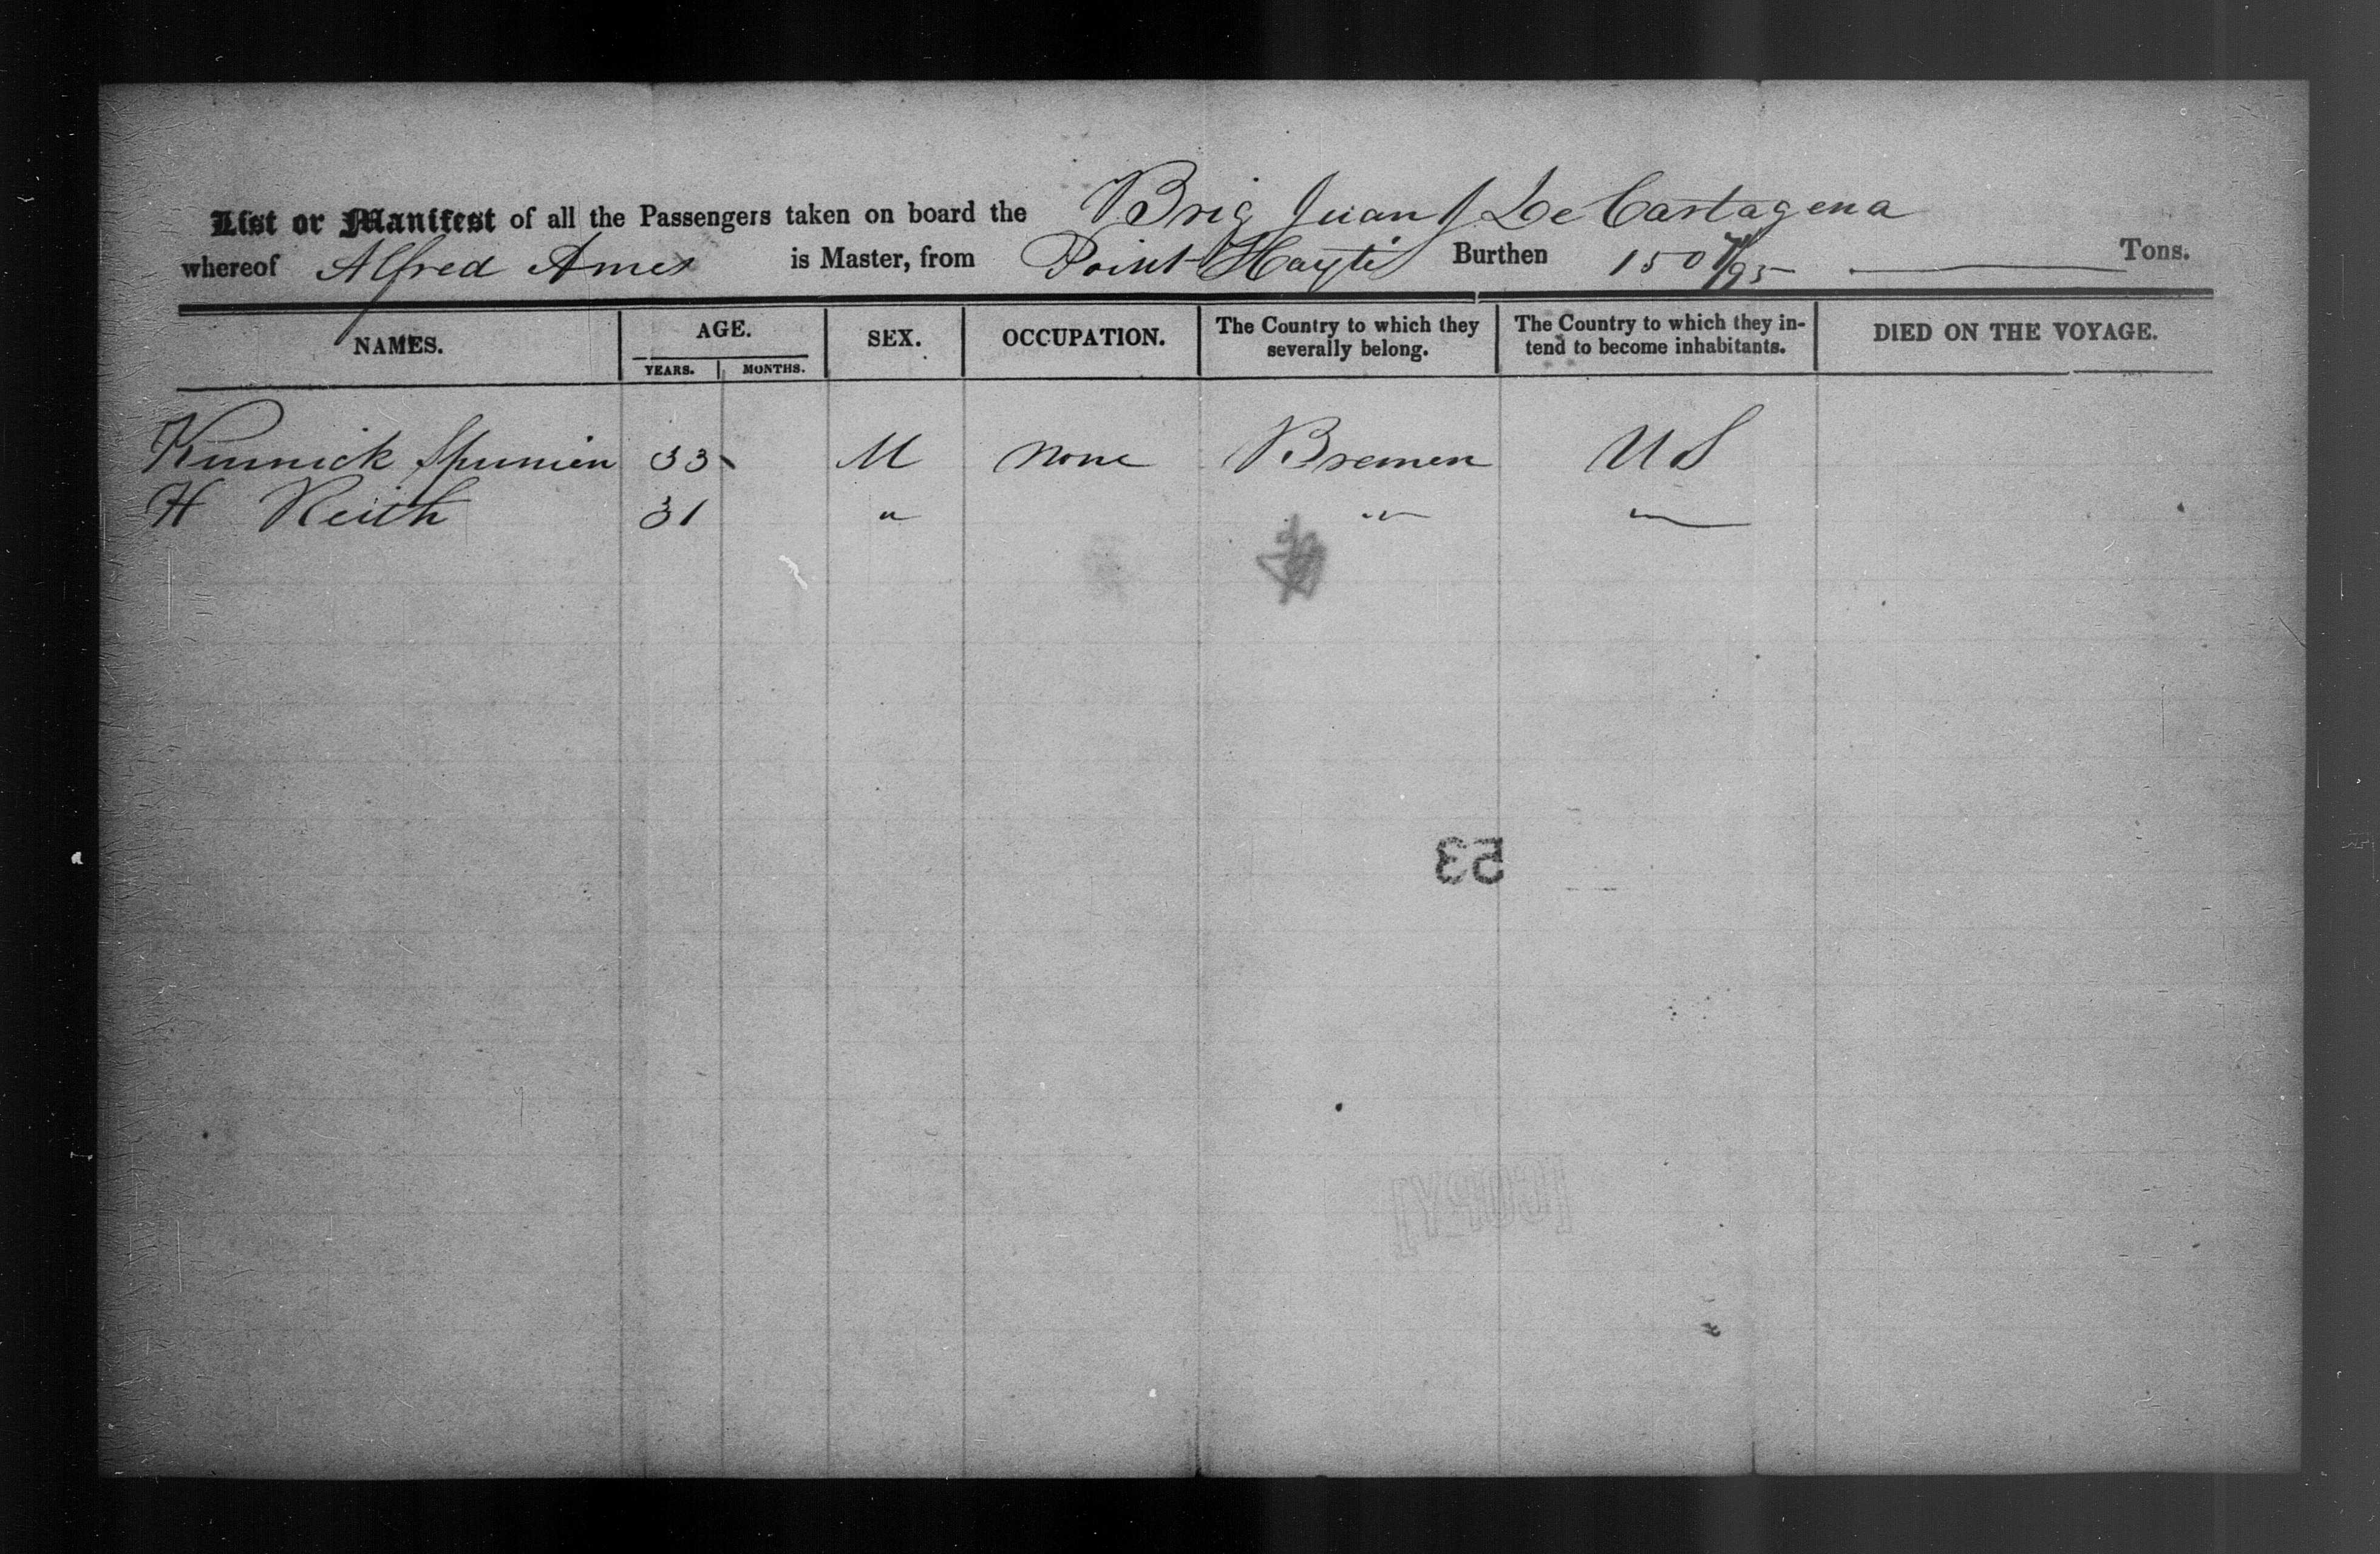 List or Manifest of all the Passengers taken on board the Brig Juan J De Cartagena
whereof Alfred Ames is Master, from Point Hayti Burthen 150 71/95 Tons.
NAMES. AGE. SEX. OCCUPATION. The Country to which they severally belong. The Country to which they intend to become inhabitants. DIED ON THE VOYAGE.
YEARS. MONTHS.
33 M None Bremen US
H Reith 31 " " "
53
[COPY]